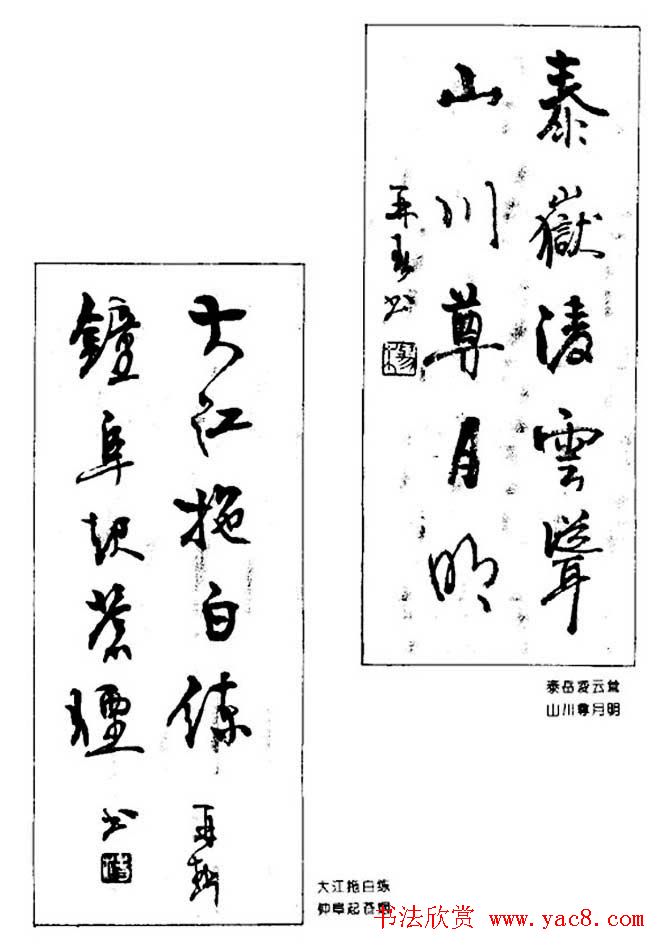 泰嶽淩雲聳
山川尊月明
泰岳凌云耸
山川尊月明
大江拖白練
鐘阜起蒼煙
大江拖白练
钟阜起苍烟
书法欣赏 www.yac8.com